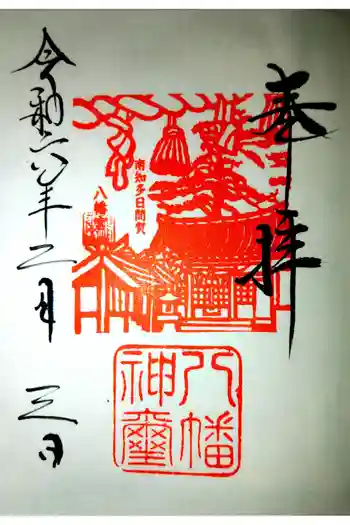 奉拝
南知多日間賀
八幡社
八幡
神璽
令和六年二月三日